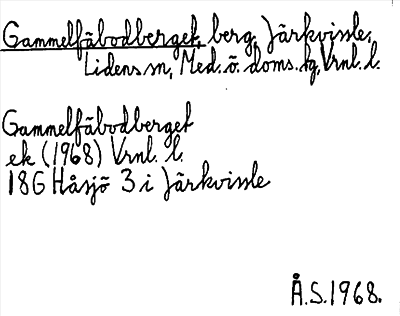 Gammelfäbodberget, berg, Järkvissle,
Lidens sn, Med. ö. doms. tg, Vrnl. l.
Gammelfäbodberget
ek (1968) Vrnl. l.
18G Håsjö 3 i Järkvissle
Å.S. 1968.